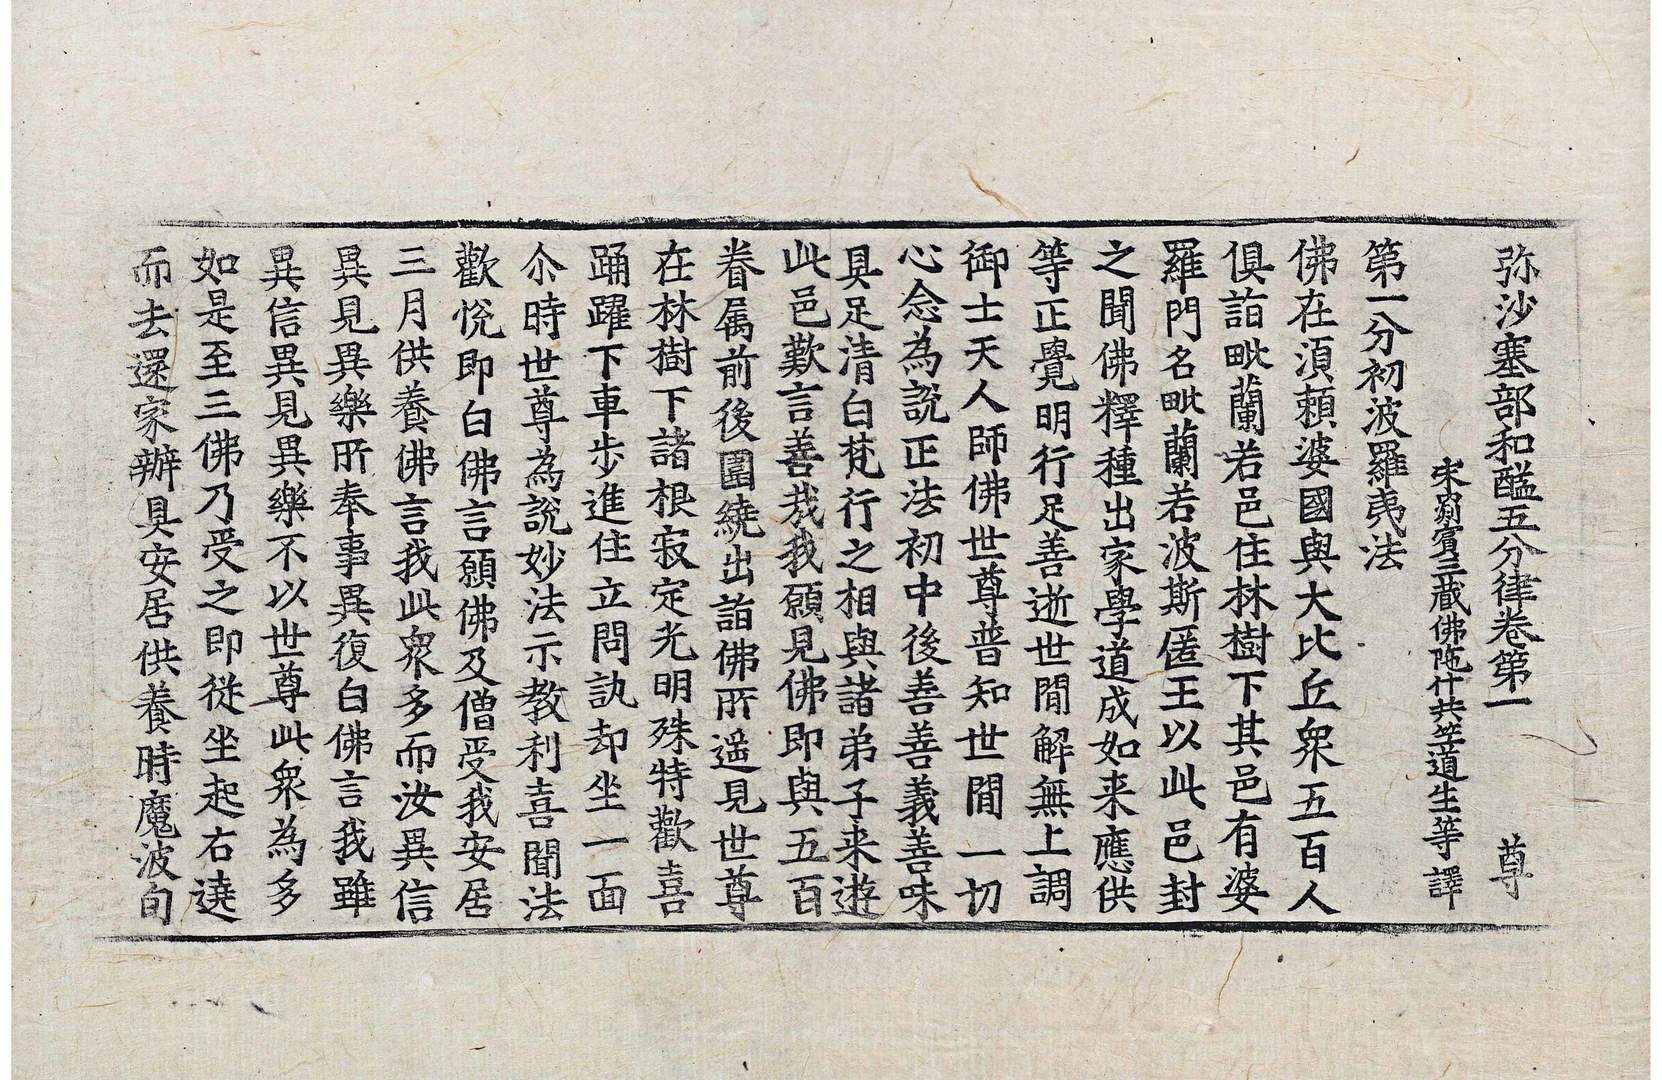 弥沙塞部和醯五分律卷第一　尊
宋罽賓三藏佛陁什共竺道生等譯
第一分初波羅夷法
佛在湏賴婆國與大比丘衆五百人
俱詣毗蘭若邑住林樹下其邑有婆
羅門名毗蘭若波斯匿王以此邑封
之聞佛釋種出家學道成如来應供
等正覺明行足善逝世間解無上調
御士天人師佛世尊普知世間一切
心念為說正法初中後善善義善味
具足清白梵行之相與諸弟子来遊
此邑歎言善㢤我願見佛即與五百
眷属前後圍繞出詣佛所遥見世尊
在林樹下諸根寂定光明殊特歡喜
踊躍下車步進住立問訊却坐一面
尒時世尊為說妙法示教利喜聞法
歡悅即白佛言願佛及僧受我安居
三月供養佛言我此衆多而汝異信
異見異樂所奉事異復白佛言我雖
異信異見異樂不以世尊此衆為多
如是至三佛乃受之即從坐起右遶
而去還家辦具安居供養時魔波旬